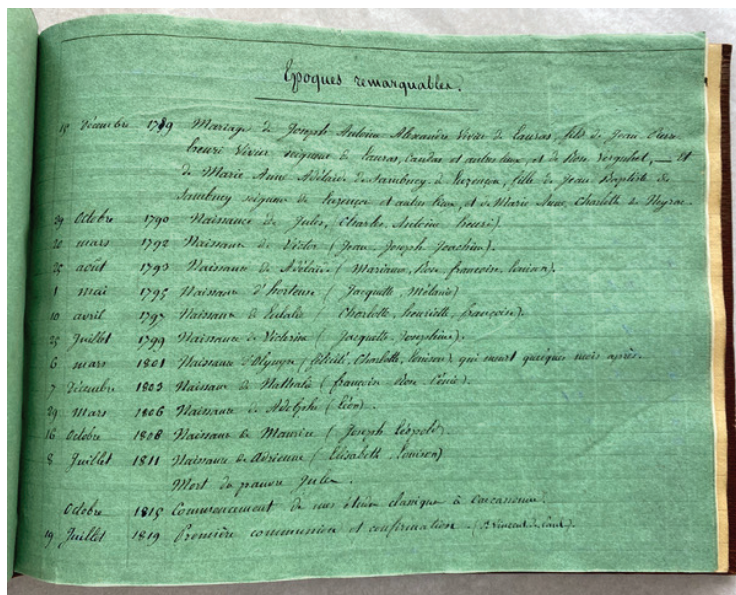 Epoques remarquables.
15 Décembre 1789 Mariage de Joseph Antoine Alexandre Vivier de Lauras, fils de Jean Pierre
Henri Vivier seigneur de Lauras, Caudas et autres lieux, et de Rose Verguhet, — Et
de Marie Anne Adélaïde de Sambucy de Luzençon, fille de Jean Baptiste de
Sambucy seigneur de Luzençon et autres lieux, et de Marie Anne Charlotte de Neyrac.
29 Octobre 1790 Naissance de Jules, (Charles, Antoine Henri).
20 mars 1792 Naissance de Victor (Jean, Joseph Joachim).
25 août 1793 Naissance de Adélaïde (Marianne, Rose, françoise, Louison).
1 mai 1795 Naissance d'hortense (Jacquette, Mélanie)
10 avril 1797 Naissance de Eulalie (Charlotte, henriette, françoise).
25 Juillet 1799 Naissance de Victorine (Jacquette Joséphine).
6 mars 1801 Naissance d'Olympe (félicité, Charlotte, louison) qui meurt quelques mois après.
7 Décembre 1803 Naissance de Nathalie (françoise Rose Zénié).
29 Mars 1806 Naissance de Adolphe (Léon).
16 Octobre 1808 Naissance de Maurice (Joseph Léopold).
8 Juillet 1811 Naissance de Adrienne (Elisabeth, Louison)
Mort du pauvre Jules.
Octobre 1815 Commencement de mes études classiques à Carcassonne.
19 Juillet 1819 Première communion et confirmation (St Vincent de Paul).